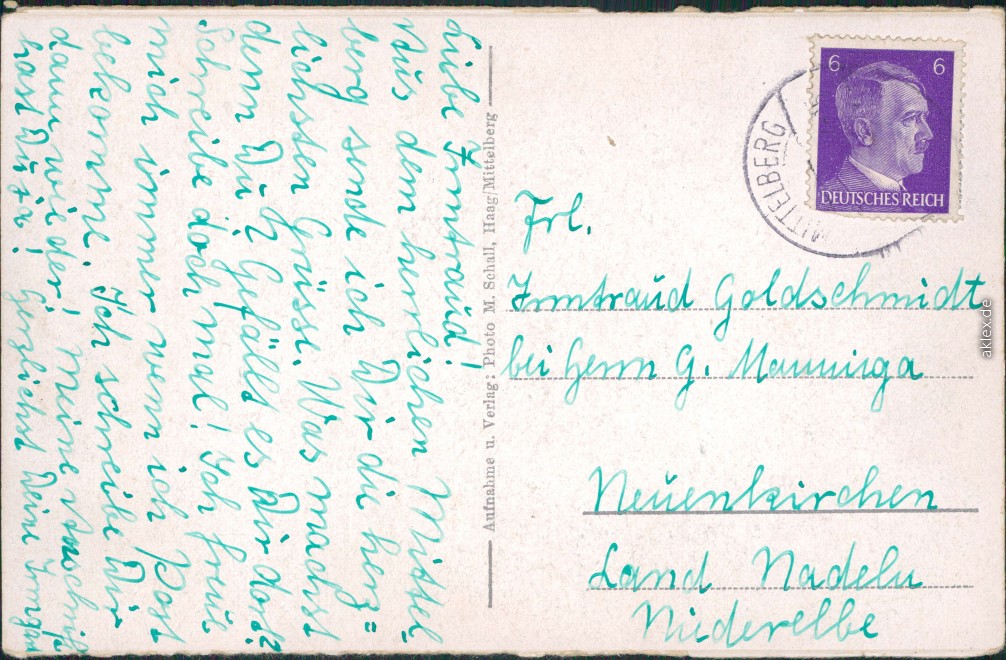 Liebe Irmtraud!
Aus dem herrlichen Mittel-
berg sende ich Dir die herz=
lichsten Grüsse. Was machst
denn Du? Gefällt es Dir dort?
Schreibe doch mal! Ich freue
mich immer wenn ich Post
bekomme. Ich schreibe Dir
dann wieder! Meine Anschrift
hast Du ja! Herzlichst Deine Irmgard
Aufnahme u. Verlag: Photo M. Schall, Haag/Mittelberg
6 6
DEUTSCHES REICH
MITTELBERG
Frl.
Irmtraud Goldschmidt
bei Herrn G. Manninga
Neuenkirchen
Land Hadeln
Niederelbe
aklex.de